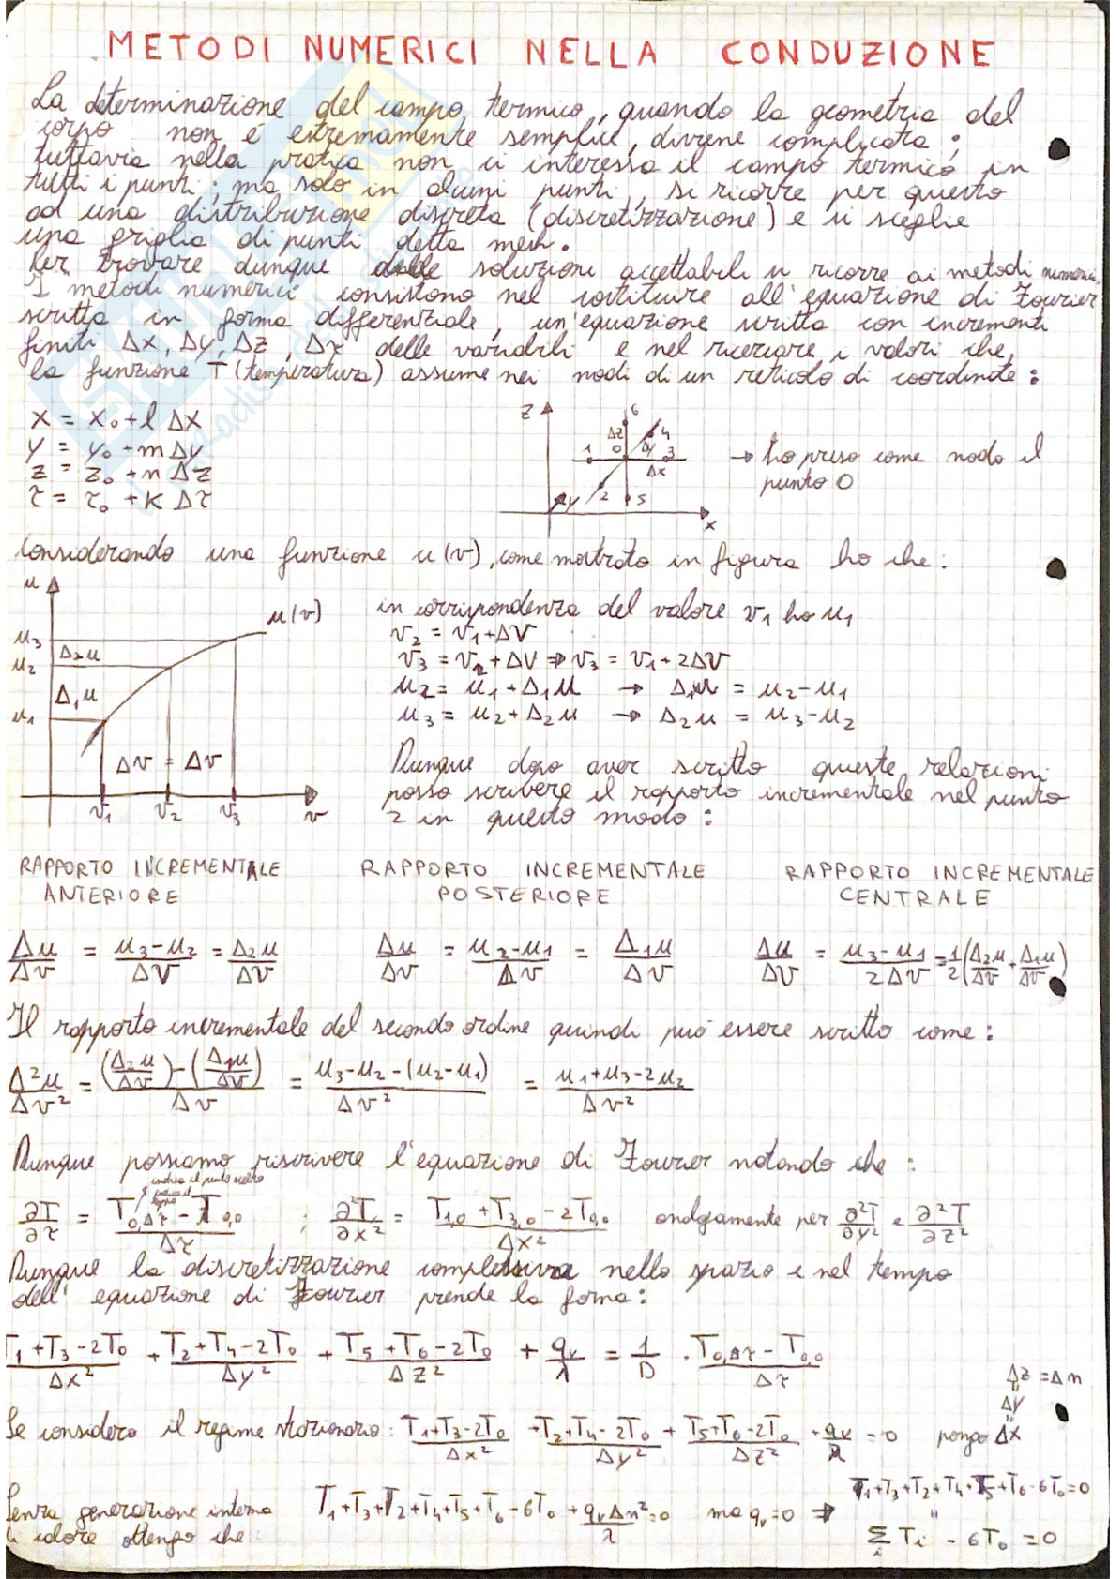 METODI NUMERICI NELLA CONDUZIONE
La determinazione del campo termico, quando la geometria del
corpo non è estremamente semplice, diviene complicata;
tuttavia nella pratica non ci interessa il campo termico in
tutti i punti; ma solo in alcuni punti, si ricorre per questo
ad una distribuzione discreta (discretizzazione) e si sceglie
una griglia di punti detta mesh.
Per trovare dunque delle soluzioni accettabili si ricorre ai metodi numerici.
I metodi numerici consistono nel sostituire all'equazione di Fourier
scritta in forma differenziale, un'equazione scritta con incrementi
finiti Δx, Δy, Δz, Δτ delle variabili e nel ricercare i valori che
la funzione T (temperatura) assume nei nodi di un reticolo di coordinate:
x = x₀ + l Δx
y = y₀ + m Δy
z = z₀ + n Δz
τ = τ₀ + K Δτ
z 6 Δz 4 1 0 Δy 3 Δx 2 5 y x
→ ho preso come nodo il
punto 0
Considerando una funzione u(v), come mostrato in figura ho che:
u u(v)
u₃ Δ₂u
u₂
Δ₁u
u₁
Δv Δv
v₁ v₂ v₃ v
in corrispondenza del valore v₁ ho u₁
v₂ = v₁ + Δv
v₃ = v₂ + Δv ⇒ v₃ = v₁ + 2Δv
u₂ = u₁ + Δ₁u → Δ₁u = u₂ - u₁
u₃ = u₂ + Δ₂u → Δ₂u = u₃ - u₂
Dunque dopo aver scritto queste relazioni
posso scrivere il rapporto incrementale nel punto
2 in questo modo:
RAPPORTO INCREMENTALE ANTERIORE
RAPPORTO INCREMENTALE POSTERIORE
RAPPORTO INCREMENTALE CENTRALE
Δu/Δv = (u₃-u₂)/Δv = Δ₂u/Δv
Δu/Δv = (u₂-u₁)/Δv = Δ₁u/Δv
Δu/Δv = (u₃-u₁)/2Δv = 1/2 (Δ₂u/Δv + Δ₁u/Δv)
Il rapporto incrementale del secondo ordine quindi può essere scritto come:
Δ²u/Δv² = ((Δ₂u/Δv) - (Δ₁u/Δv))/Δv = (u₃-u₂-(u₂-u₁))/Δv² = (u₁+u₃-2u₂)/Δv²
Dunque possiamo riscrivere l'equazione di Fourier notando che:
indica il punto scelto
∂T/∂τ = (T₀,Δτ - T₀,₀)/Δτ ; ∂²T/∂x² = (T₁,₀ + T₃,₀ - 2T₀,₀)/Δx² analogamente per ∂²T/∂y² e ∂²T/∂z²
Dunque la discretizzazione complessiva nello spazio e nel tempo
dell'equazione di Fourier prende la forma:
(T₁+T₃-2T₀)/Δx² + (T₂+T₄-2T₀)/Δy² + (T₅+T₆-2T₀)/Δz² + qᵥ/λ = 1/D · (T₀,Δτ - T₀,₀)/Δτ
Δz = Δn
"
Δy
"
Se considero il regime stazionario: (T₁+T₃-2T₀)/Δx² + (T₂+T₄-2T₀)/Δy² + (T₅+T₆-2T₀)/Δz² + qᵥ/λ = 0 pongo Δx
Senza generazione interna
di calore ottengo che:
T₁+T₃+T₂+T₄+T₅+T₆-6T₀ + qᵥΔn²/λ = 0 ma qᵥ=0 ⇒
T₁+T₃+T₂+T₄+T₅+T₆-6T₀=0
"
Σᵢ Tᵢ - 6T₀ = 0